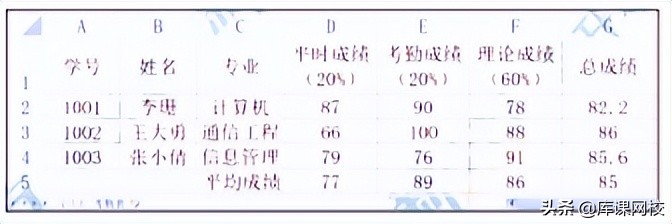 A B C D E F G
1 学号 姓名 专业 平时成绩（20%） 考勤成绩（20%） 理论成绩（60%） 总成绩
2 1001 李珊 计算机 87 90 78 82.2
3 1002 王大勇 通信工程 66 100 88 86
4 1003 张小倩 信息管理 79 76 91 85.6
5 平均成绩 77 89 86 85
头条 @库课网校